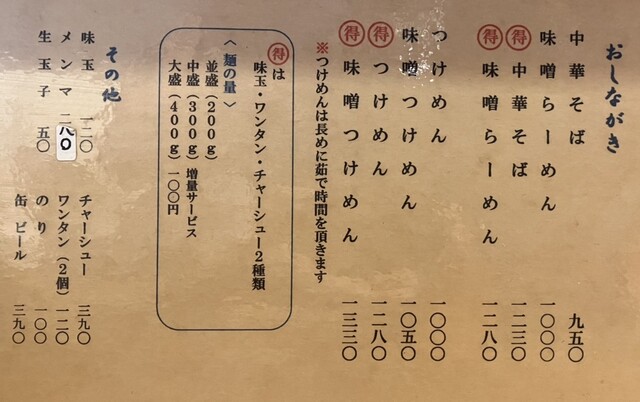 おしながき
中華そば 九五〇
味噌らーめん 一〇〇〇
得 中華そば 一二三〇
得 味噌らーめん 一二八〇
つけめん 一〇〇〇
味噌つけめん 一〇五〇
得 つけめん 一二八〇
得 味噌つけめん 一三三〇
※つけめんは長めに茹で時間を頂きます
得は
味玉・ワンタン・チャーシュー2種類
〈麺の量〉
並盛(200g)
中盛(300g)増量サービス
大盛(400g)一〇〇円
その他
味玉 一二〇
メンマ 二八〇
生玉子 五〇
チャーシュー 三九〇
ワンタン(2個) 一二〇
のり 一〇〇
缶ビール 三九〇